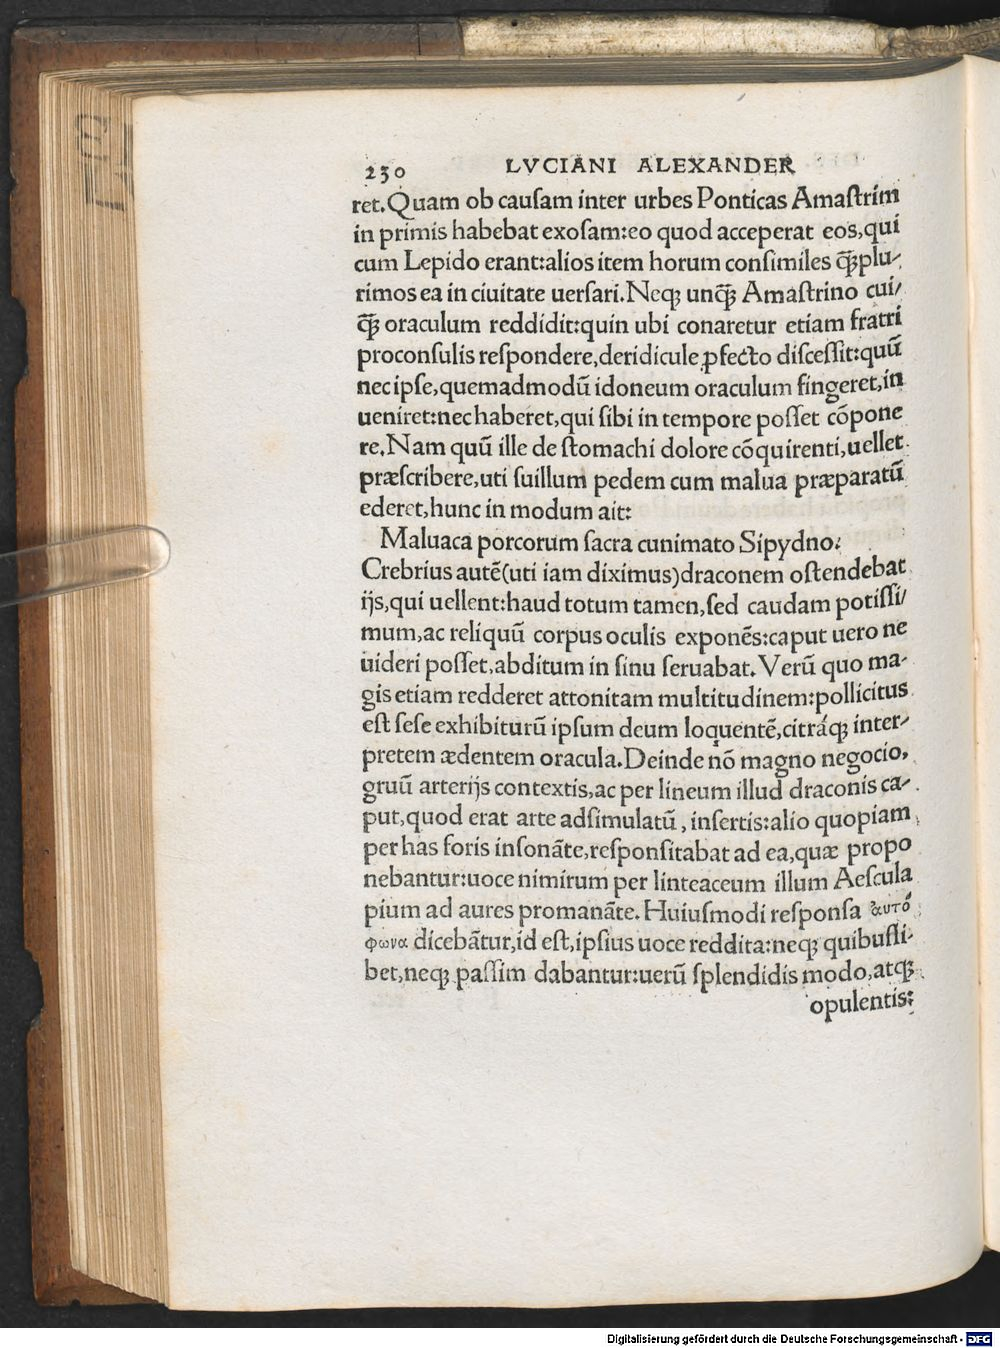 230 LVCIANI ALEXANDER
ret.Quam ob cauſam inter urbes Ponticas Amaſtrim
in primis habebat exoſam:eo quod acceperat eos,qui
cum Lepido erant:alios item horum conſimiles q̃ꝫ plu-
rimos ea in ciuitate uerſari.Neqꝫ unq̃ꝫ Amaſtrino cui/
q̃ꝫ oraculum reddidit:quin ubi conaretur etiam fratri
proconſulis reſpondere,deridicule ꝓfecto diſceſſit:quū
nec ipſe,quemadmodū idoneum oraculum fingeret,in
ueniret:nec haberet,qui ſibi in tempore poſſet cōpone
re.Nam quū ille de ſtomachi dolore cōquirenti,uellet
præſcribere,uti ſuillum pedem cum malua præparatū
ederet,hunc in modum ait:
Maluaca porcorum ſacra cunimato Sipydno.
Crebrius autē(uti iam diximus)draconem oſtendebat
ijs,qui uellent:haud totum tamen,ſed caudam potiſſi/
mum,ac reliquū corpus oculis exponēs:caput uero ne
uideri poſſet,abditum in ſinu ſeruabat.Verū quo ma-
gis etiam redderet attonitam multitudinem:pollicitus
eſt ſeſe exhibiturū ipſum deum loquentē,citráqꝫ inter-
pretem ædentem oracula.Deinde nō magno negocio,
gruū arterijs contextis,ac per lineum illud draconis ca-
put,quod erat arte adſimulatū,inſertis:alio quopiam
per has foris inſonāte,reſponſitabat ad ea,quæ propo
nebantur:uoce nimirum per linteaceum illum Aeſcula
pium ad aures promanāte.Huiuſmodi reſponſa ἀυτό
φωνα dicebātur,id eſt,ipſius uoce reddita:neqꝫ quibuſli-
bet,neqꝫ paſſim dabantur:uerū ſplendidis modo,atqꝫ
opulentis:
Digitalisierung gefördert durch die Deutsche Forschungsgemeinschaft - DFG